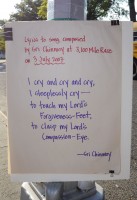 Lyrics to song composed
by Sri Chinmoy at 3,100 Mile Race
on 9 July 2007
I cry and cry and cry,
I sleeplessly cry—
to touch my Lord's
Forgiveness-Feet,
to clasp my Lord's
Compassion-Eye.
—Sri Chinmoy